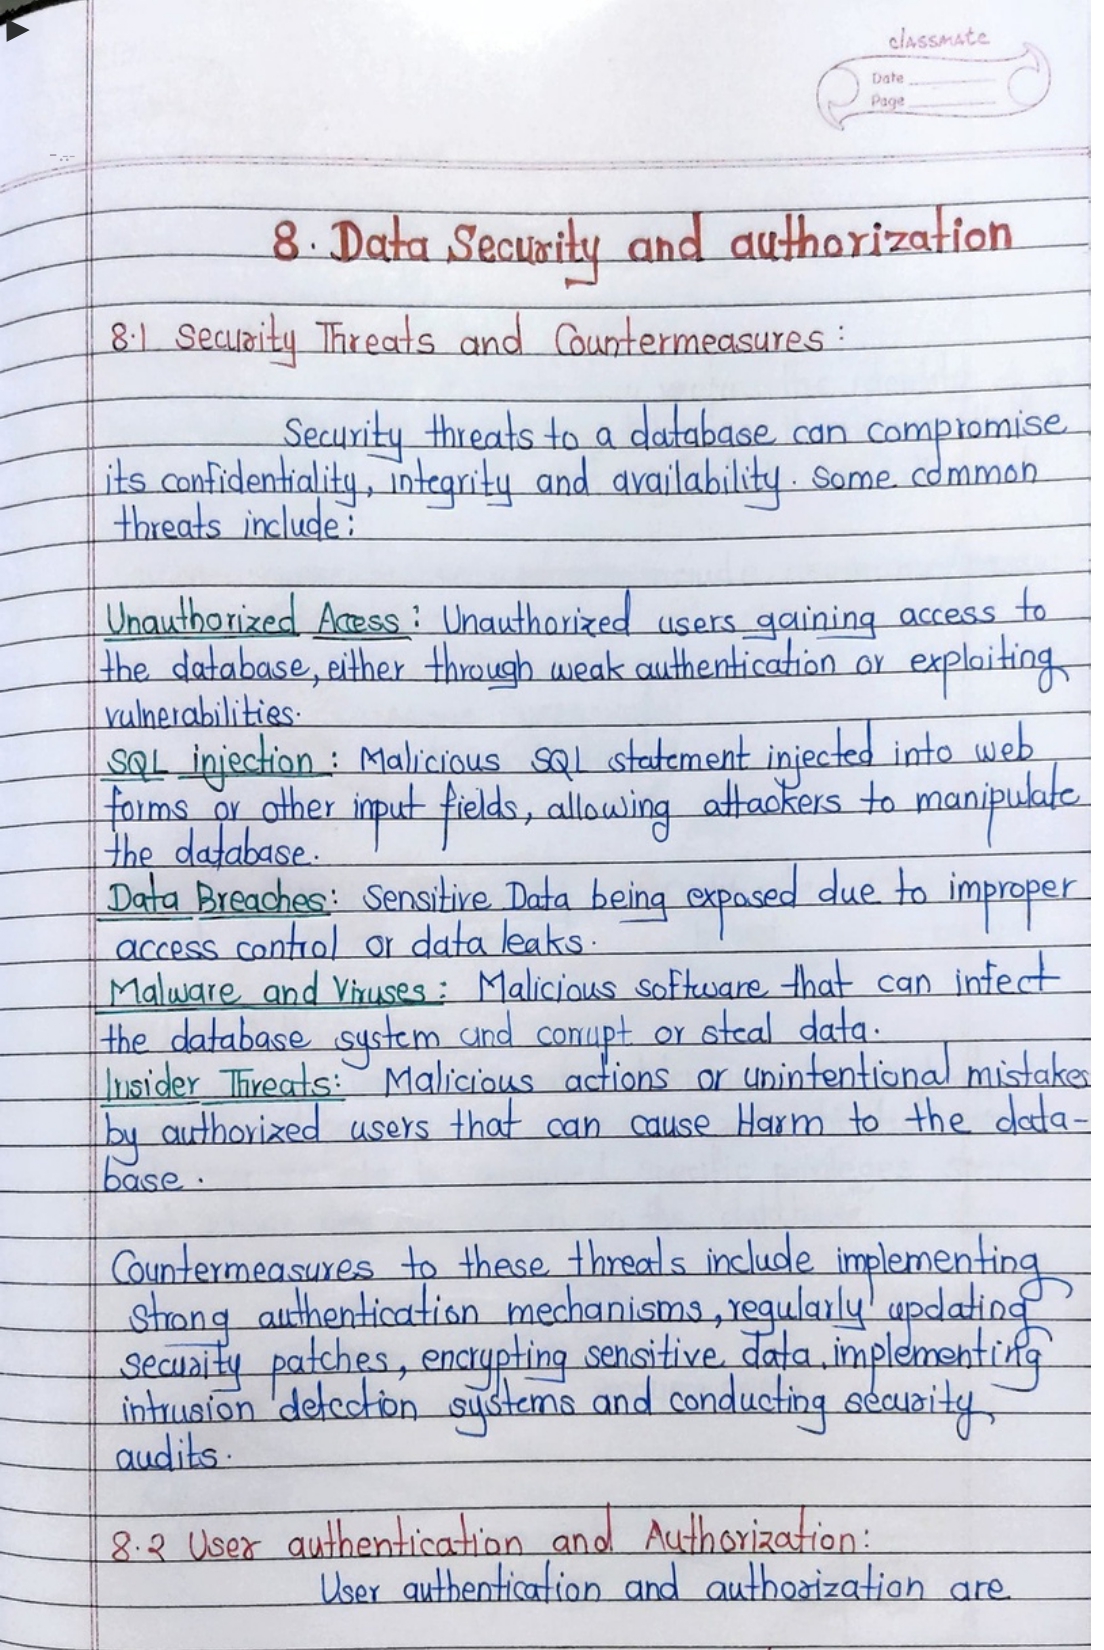 classmate
Date
Page
8. Data Security and authorization
8.1 Security Threats and Countermeasures:
Security threats to a database can compromise
its confidentiality, integrity and availability. Some common
threats include:
Unauthorized Access: Unauthorized users gaining access to
the database, either through weak authentication or exploiting
vulnerabilities.
SQL injection: Malicious SQL statement injected into web
forms or other input fields, allowing attackers to manipulate
the database.
Data Breaches: Sensitive Data being exposed due to improper
access control or data leaks.
Malware and Viruses: Malicious software that can infect
the database system and corrupt or steal data.
Insider Threats: Malicious actions or unintentional mistakes
by authorized users that can cause Harm to the data-
base.
Countermeasures to these threats include implementing
strong authentication mechanisms, regularly updating
security patches, encrypting sensitive data, implementing
intrusion detection systems and conducting security
audits.
8.2 User authentication and Authorization:
User authentication and authorization are